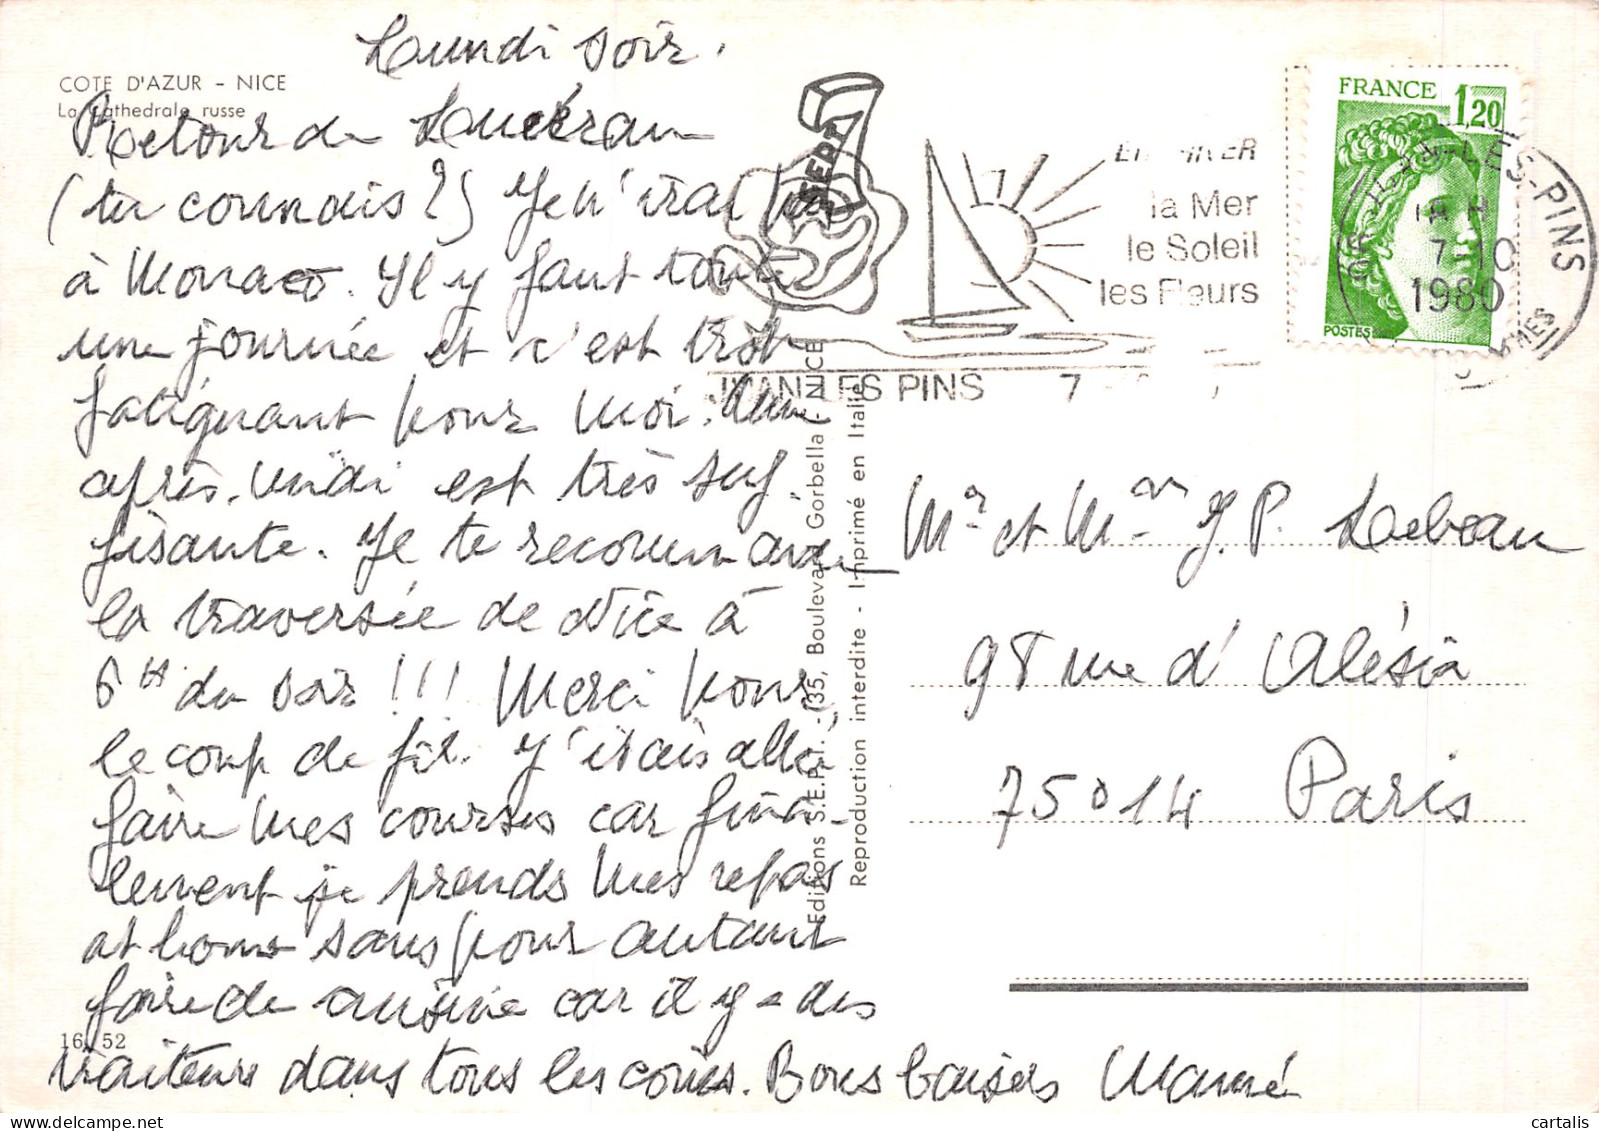 Lundi soir.
COTE D'AZUR - NICE
La Cathedrale russe
Retour de
(tu connais ?) Je n'irai pas
à Monaco. Il y faut toute
une journée et c'est trop
fatigant pour moi. Une
après-midi est très suf,
fisante. Je te recommande
la traversée de Nice à
6H du soir !!! Merci pour
le coup de fil. J'étais allé
faire mes courses car fina-
lement je prends mes repas
at home sans pour autant
faire de cuisine car il y a des
traiteurs dans tous les coins. Bons baisers
16/52
Editions S.E.P.T. - 135, Boulevard Gorbella - NICE
Reproduction interdite - Imprimé en Italie
SEPT
la Mer
le Soleil
les Fleurs
JUAN-LES PINS
FRANCE 1,20
POSTES
JUAN-LES-PINS
7-10
1980
Mr et Mme J.P. Lebeau
98 rue d'Alésia
75014 Paris
cartalis.com